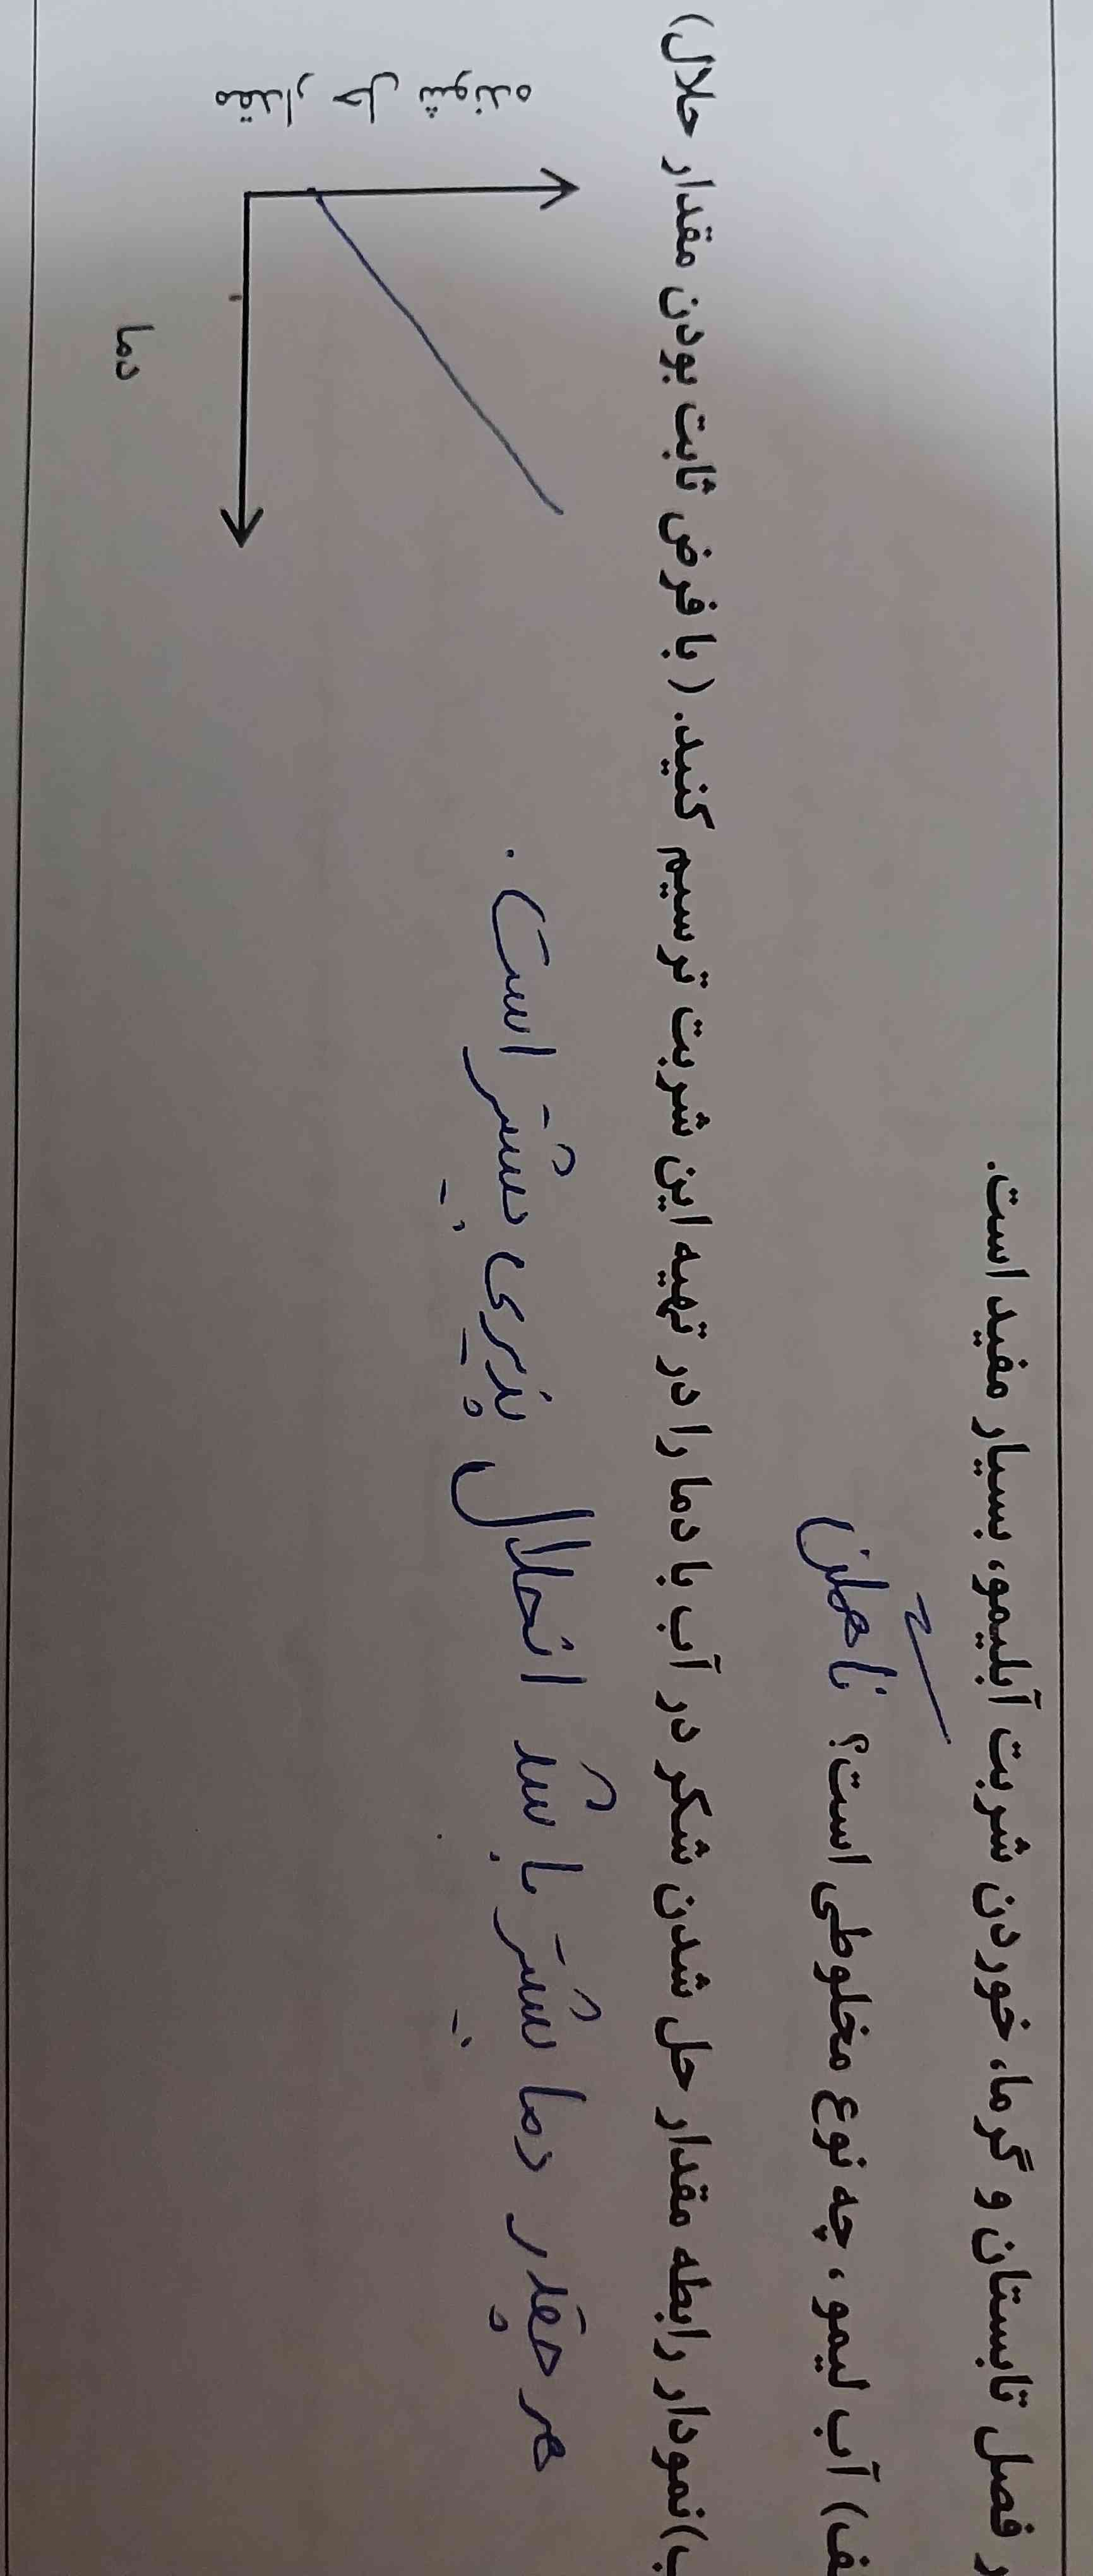 ر فصل تابستان و گرما، خوردن شربت آبلیمو، بسیار مفید است.
ف) آب لیمو، چه نوع مخلوطی است؟ ناهمگن
ب)نمودار رابطه مقدار حل شدن شکر در آب با دما را در تهیه این شربت ترسیم کنید. (با فرض ثابت بودن مقدار حلال)
هر چقدر دما بیشتر باشد انحلال پذیری بیشتر است.
مقدار حل شونده
دما